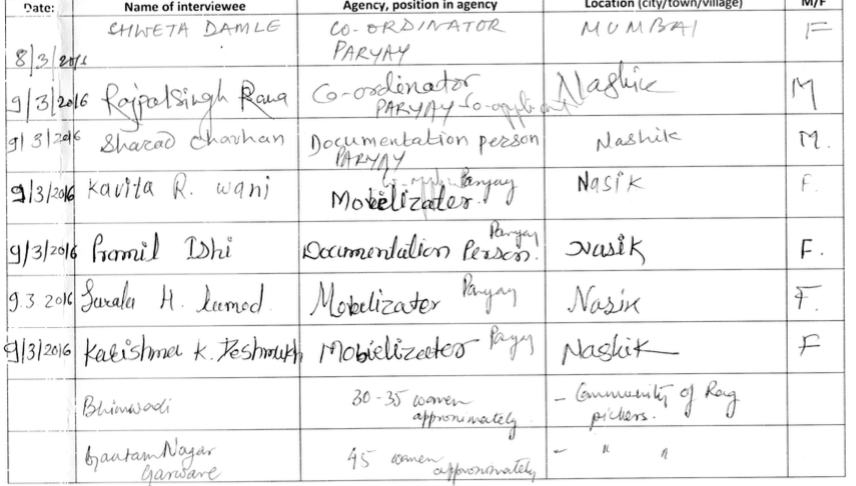 Date: Name of interviewee Agency, position in agency Location (city/town/village) M/F
8/3/2016 SHWETA DAMLE CO-ORDINATOR PARYAY MUMBAI F
9/3/2016 Rajpalsingh Rana Co-ordinator PARYAY Co-applicant Nashik M
9/3/2016 Sharad Chavhan Documentation person PARYAY Nashik M.
9/3/2016 Kavita R. Wani Mobilizater. Paryay Nasik F.
9/3/2016 Pramil Ishi Documentation Person. Paryay Nasik F.
9.3 2016 Sarala H. Mobelizater Paryay Nasik F.
9/3/2016 Karishma K. Deshmukh Mobielizater Nashik F
Bhimwadi 30-35 women approximately - Community of Rag pickers.
Gautam Nagar Garware 45 women approximately - " "